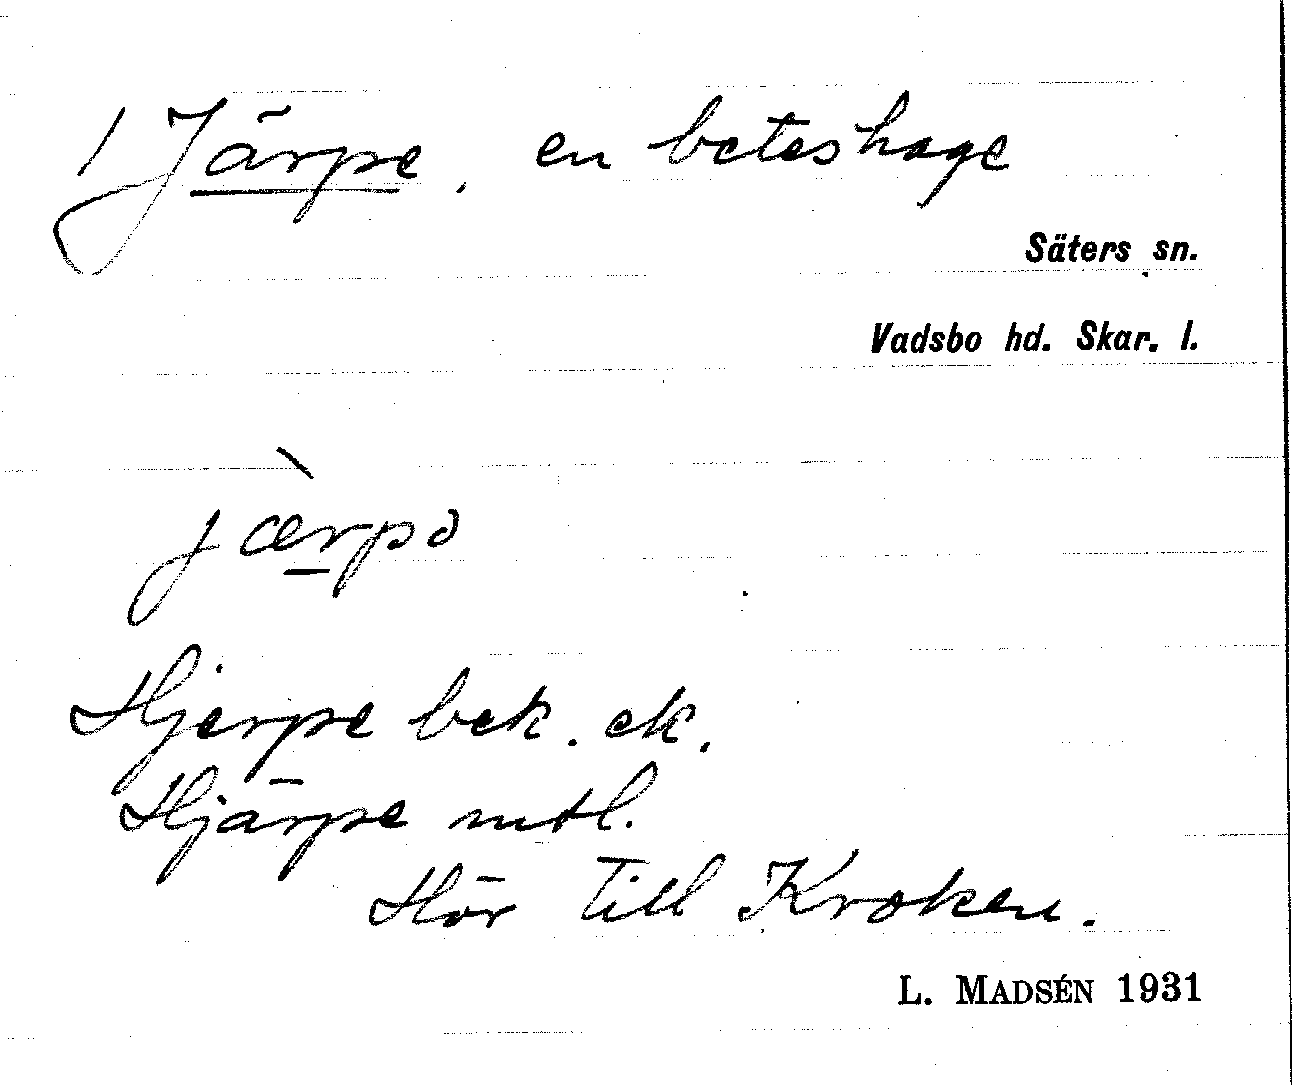 / Järpe, en beteshage
Säters sn.
Vadsbo hd. Skar. l.
jærpə
Hjerpe bek. ek.
Hjärpe mtl.
Hör till Kroken.
L. MADSÉN 1931